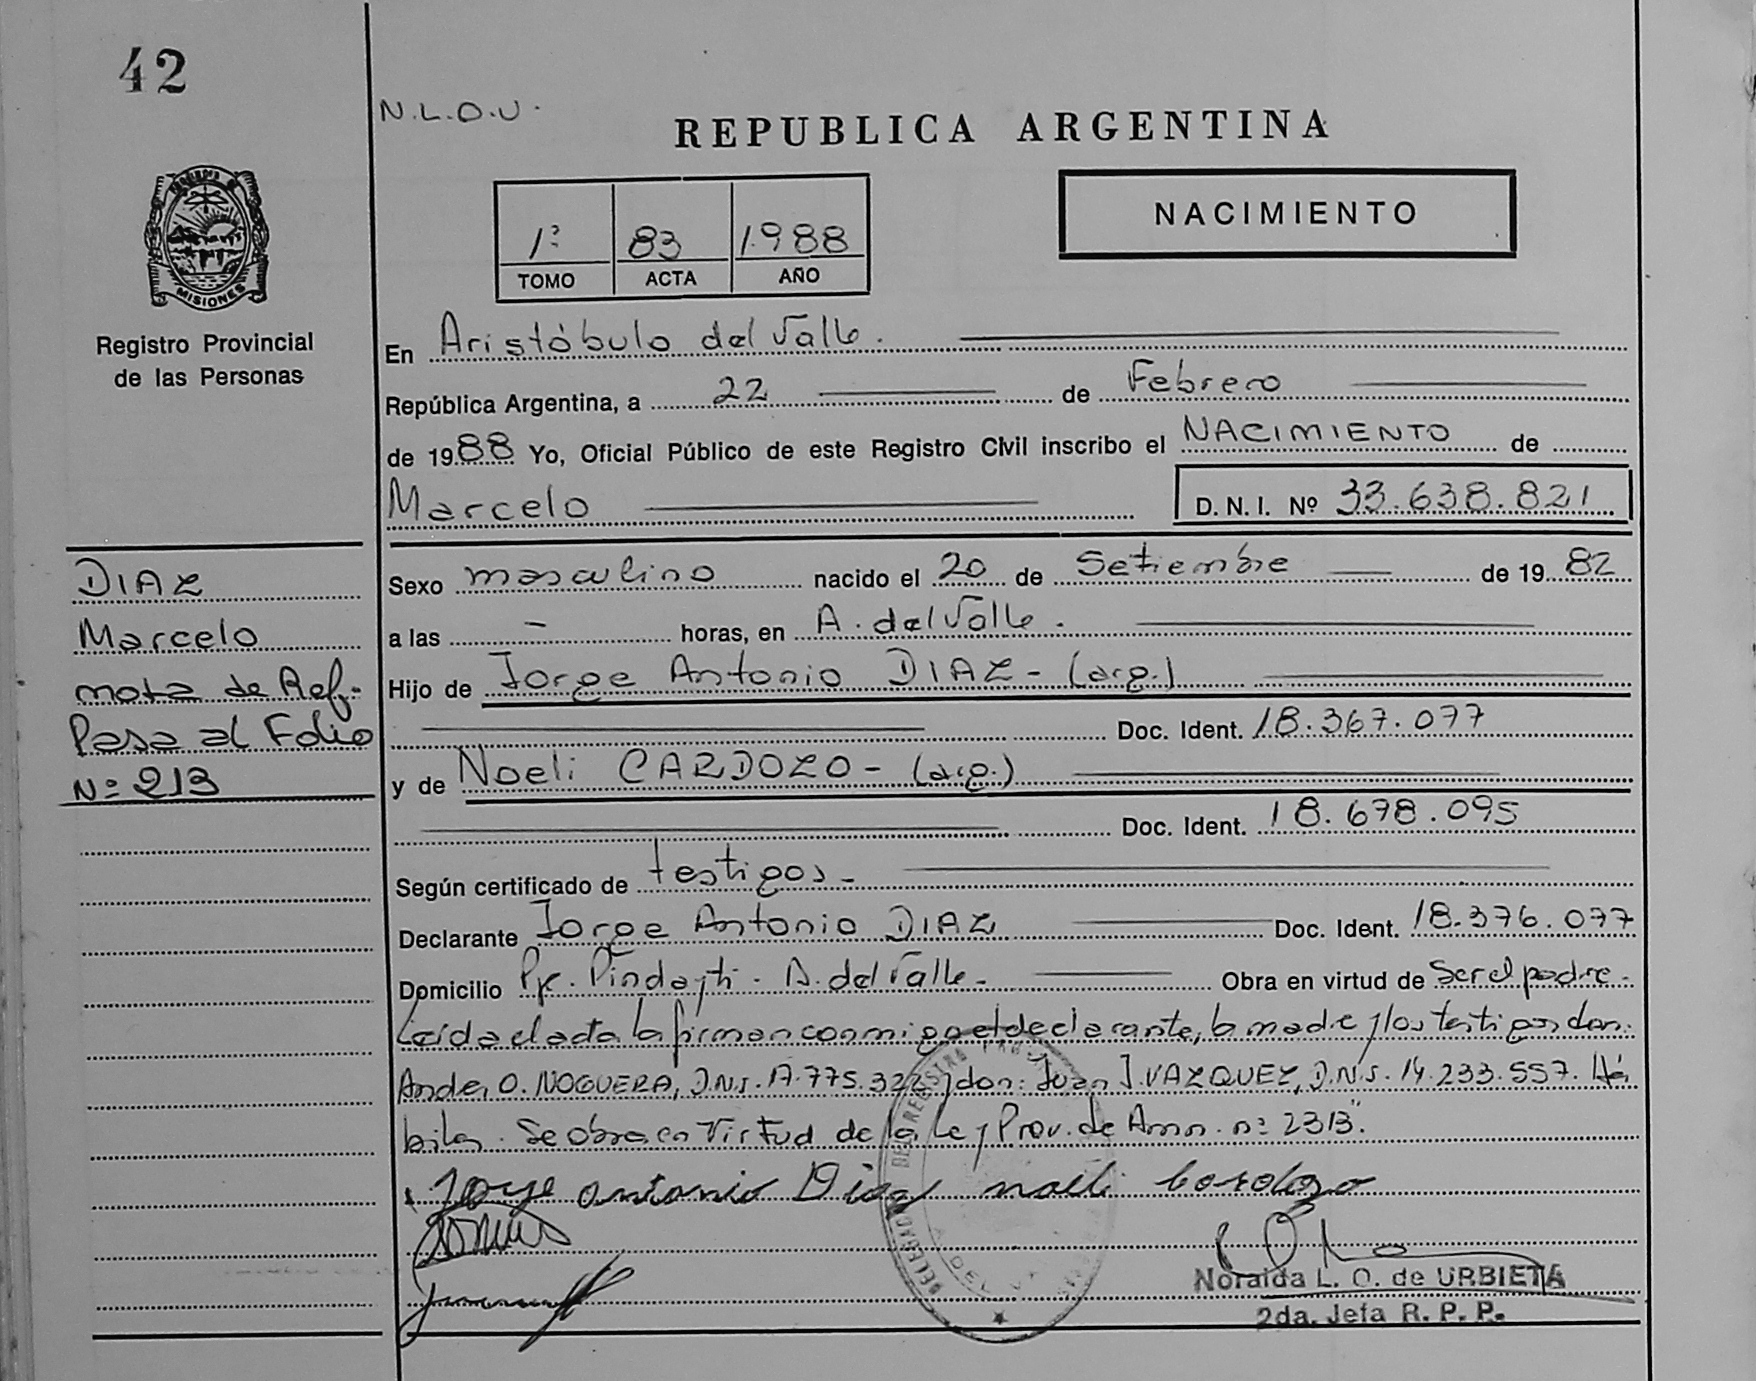 42
N.L.O.U.
REPUBLICA ARGENTINA
1º 83 1.988
TOMO ACTA AÑO
NACIMIENTO
MISIONES
Registro Provincial
de las Personas
En Aristóbulo del Valle.
República Argentina, a 22 de Febrero
de 1988 Yo, Oficial Público de este Registro Civil inscribo el NACIMIENTO de
Marcelo D. N. I. Nº 33.638.821
DIAZ
Marcelo
nota de Ref.
Pasa al Folio
Nº 213
Sexo masculino nacido el 20 de Setiembre de 1982
a las - horas, en A. del Valle.
Hijo de Jorge Antonio DIAZ - (arg.)
Doc. Ident. 18.367.077
y de Noeli CARDOZO - (arg.)
Doc. Ident. 18.678.095
Según certificado de testigos -
Declarante Jorge Antonio DIAZ Doc. Ident. 18.376.077
Domicilio Pje. Pindayti - A. del Valle - Obra en virtud de ser el padre.
Leída el acta la firman conmigo el declarante, la madre y los testigos don:
O. NOGUERA, D.N.I. 17.775.322 y don: Juan J. VAZQUEZ, D.N.I. 14.233.557. Há
biles. Se obra en virtud de la Ley Prov. de Amn. nº 2313".
Jorge antonio Diaz noeli cardozo
Noraida L. O. de URBIETA
2da. Jefa R. P. P.